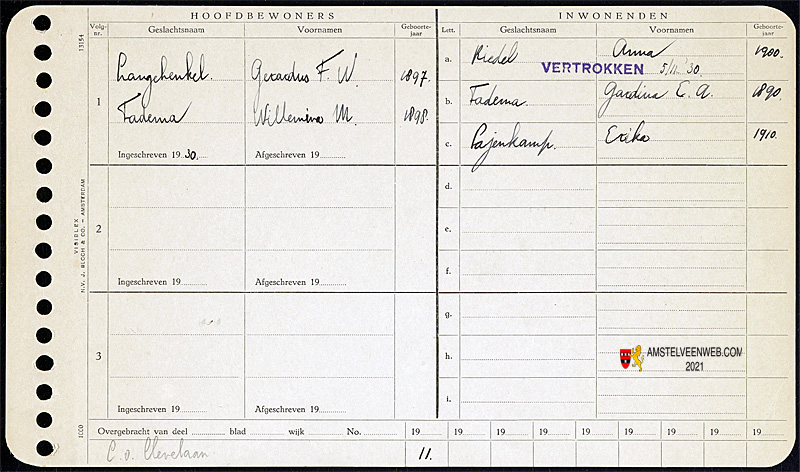 HOOFDBEWONERS
Volg-nr. Geslachtsnaam Voornamen Geboorte-jaar
1 Langehenkel. Gerardus F. W. 1897.
Fadema Willemina M. 1898.
Ingeschreven 19 30. Afgeschreven 19
2
Ingeschreven 19 Afgeschreven 19
3
Ingeschreven 19 Afgeschreven 19
INWONENDEN
Lett. Geslachtsnaam Voornamen Geboorte-jaar
a. Riedel Anna 1900.
VERTROKKEN 5/11 '30.
b. Fadema. Gardina E. A. 1890.
c. Pajenkamp. Erika 1910.
d.
e.
f.
g.
h.
i.
AMSTELVEENWEB.COM
2021
Overgebracht van deel blad wijk No. 19 19 19 19 19 19 19 19 19
C. v. Clevelaan 11.
13154
VISIBLEX
N.V. J. BLOCH & CO. – AMSTERDAM